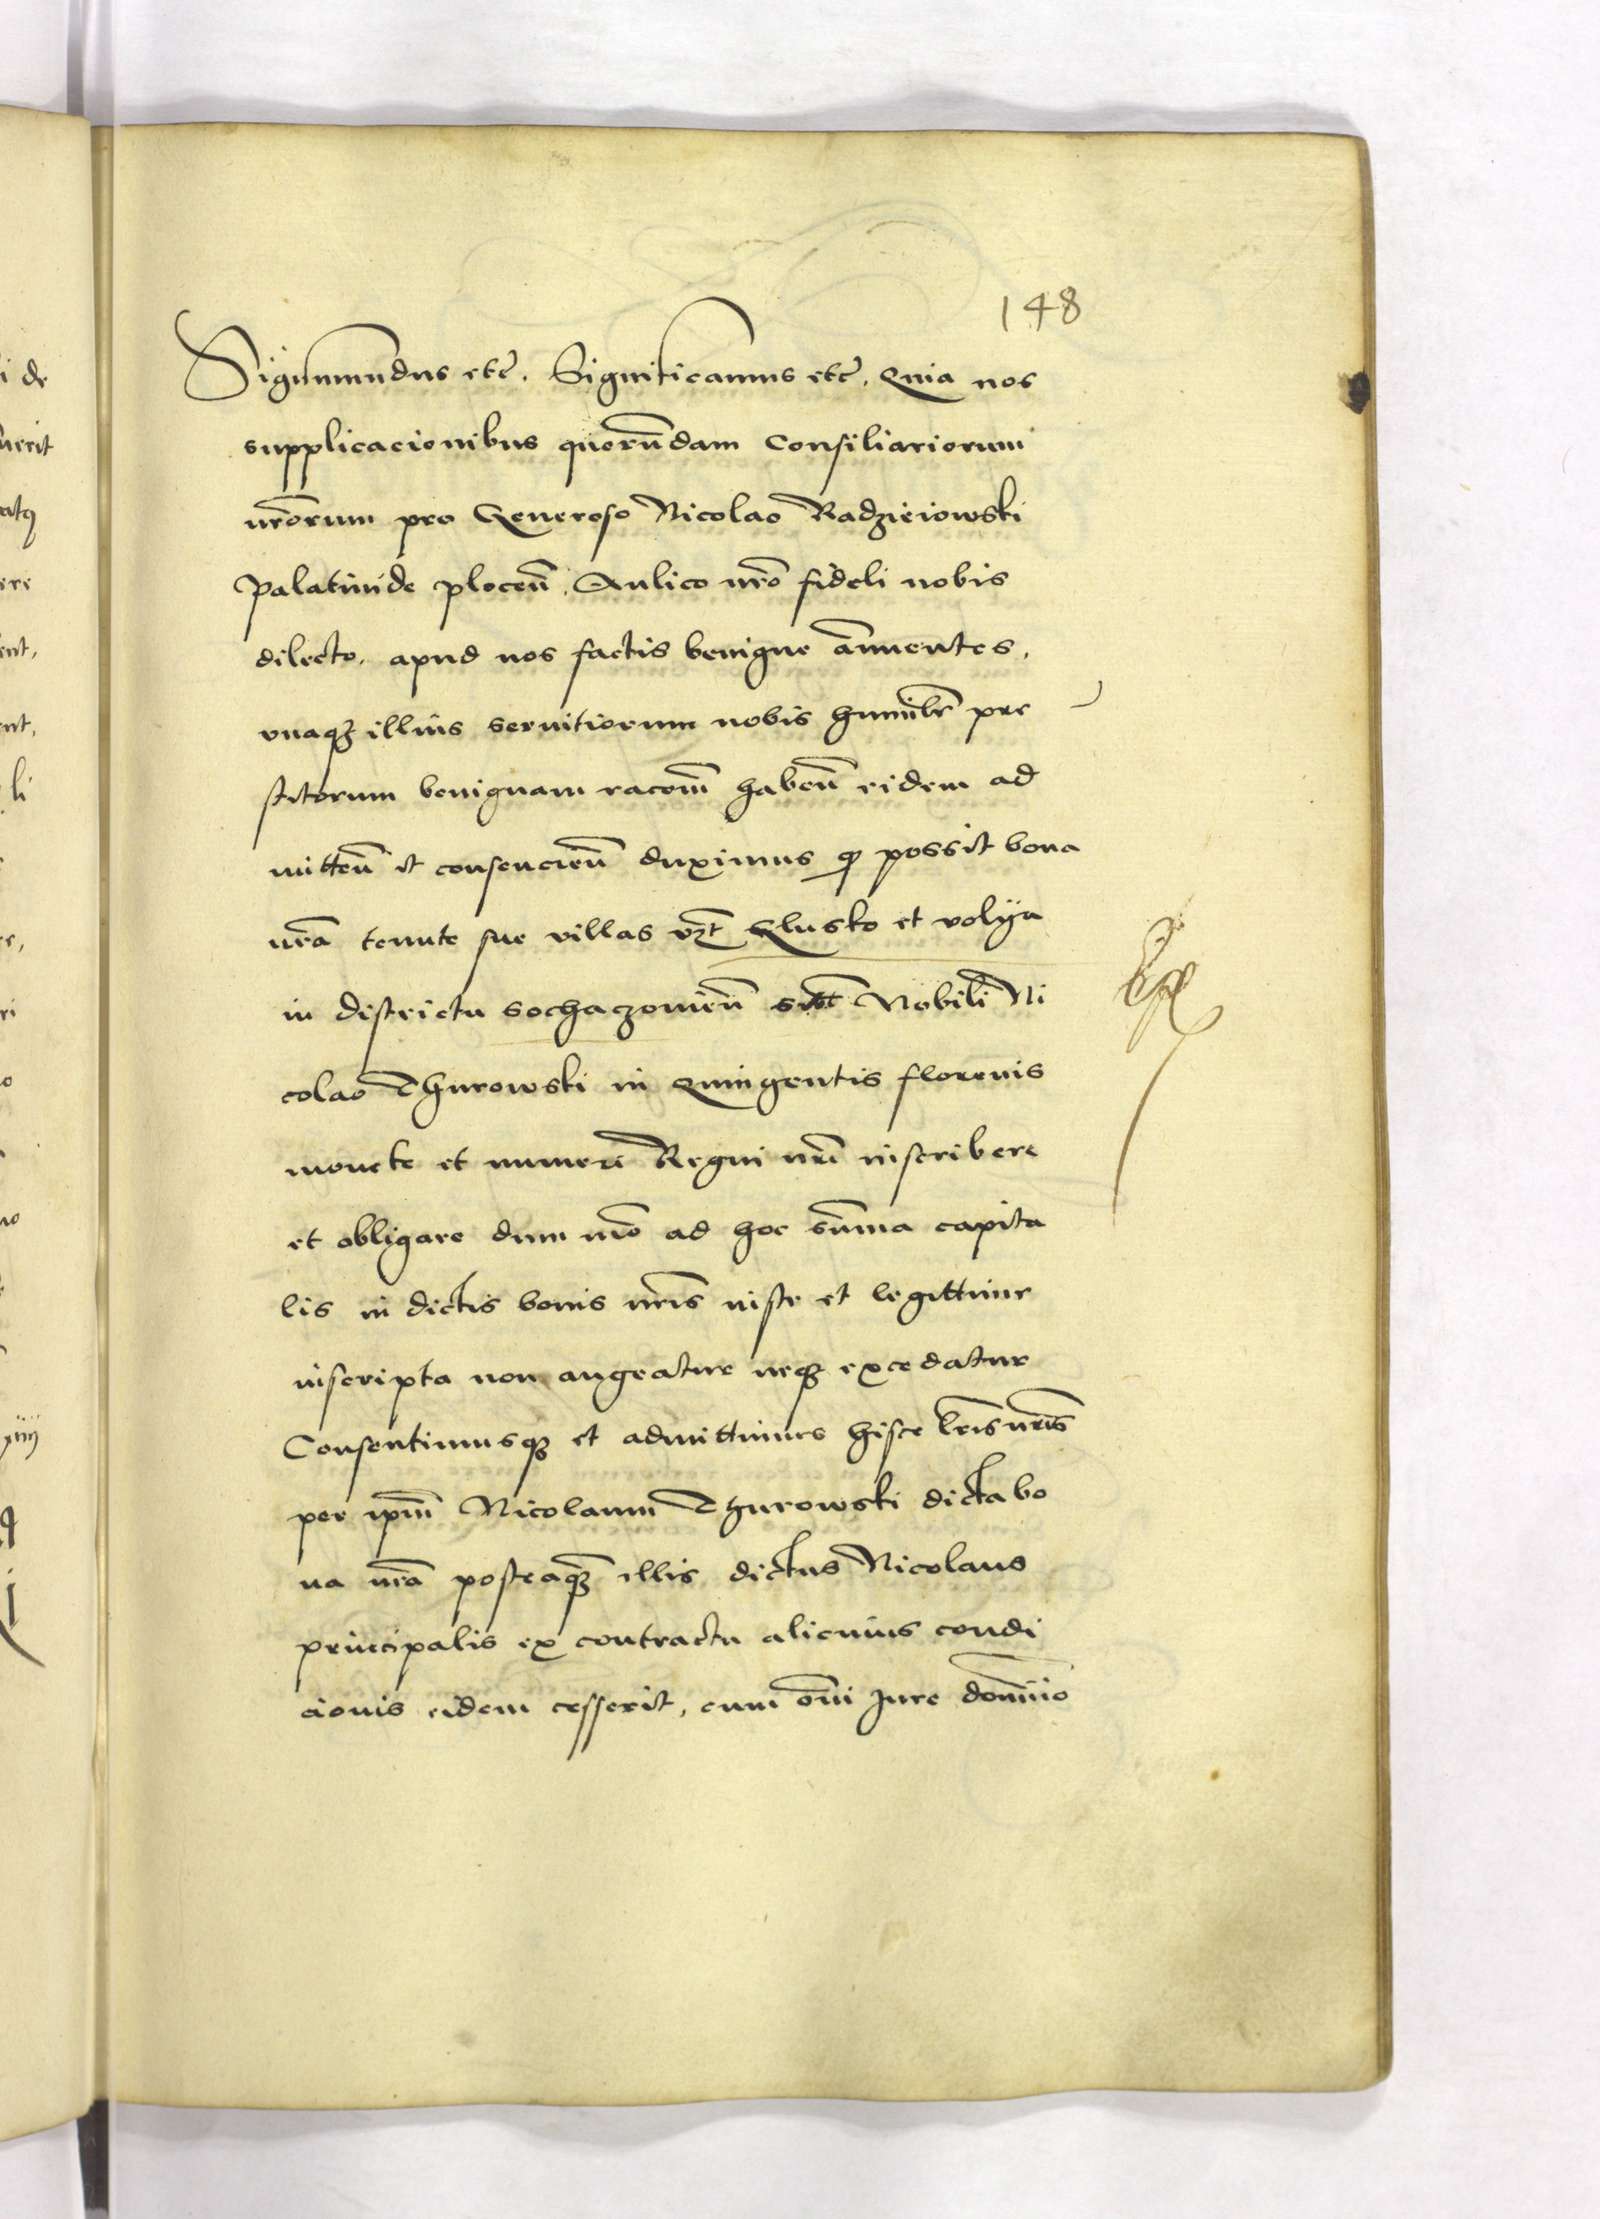 148
Sigismundus etc̄. Significamus etc̄. Quia nos
supplicacionibus quorūdam Consiliariorum
nr̄orum pro Generoso Nicolao Radzieiowski
Palatinide plocen̄. Aulico nr̄o fideli nobis
dilecto. apud nos factis benigne ānuentes,
vnaqꝫ illius seruitiorum nobis humilr̄ pre
stitorum benignam racom̄ haben̄ eidem ad
mitten̄ et consencien̄ duximus ꝙ possit bona
nr̄a tenute sue villas vꝫt Klusko et volya
in districtu sochaczouien̄ Nobili Ni
colao Thurowski in Quingentis florenis
monete et numeri Regni nr̄i inscribere
et obligare dum mō ad hoc sūma capita
lis in dictis bonis nr̄is iuste et legittime
inscripta non augeatur neqꝫ excedatur
Consentimusqꝫ et admittimus hisce lr̄is nr̄is
per ip̄m Nicolaum Thurowski dicta bo
na nr̄a posteaqꝫ illis dictus Nicolaus
principalis ex contractu alicuius condi
cionis eidem cesserit, cum om̄i Jure dominio